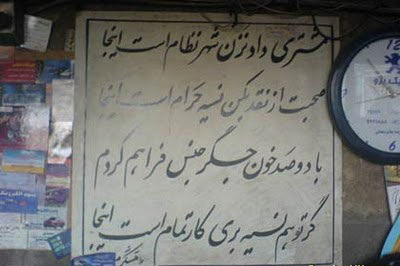 مشتری داد نزن شهر نظام است اینجا
صحبت از نقد بکن نسیه حرام است اینجا
با دو صد خون جگر جنس فراهم کردم
گر تو هم نسیه بری کار تمام است اینجا